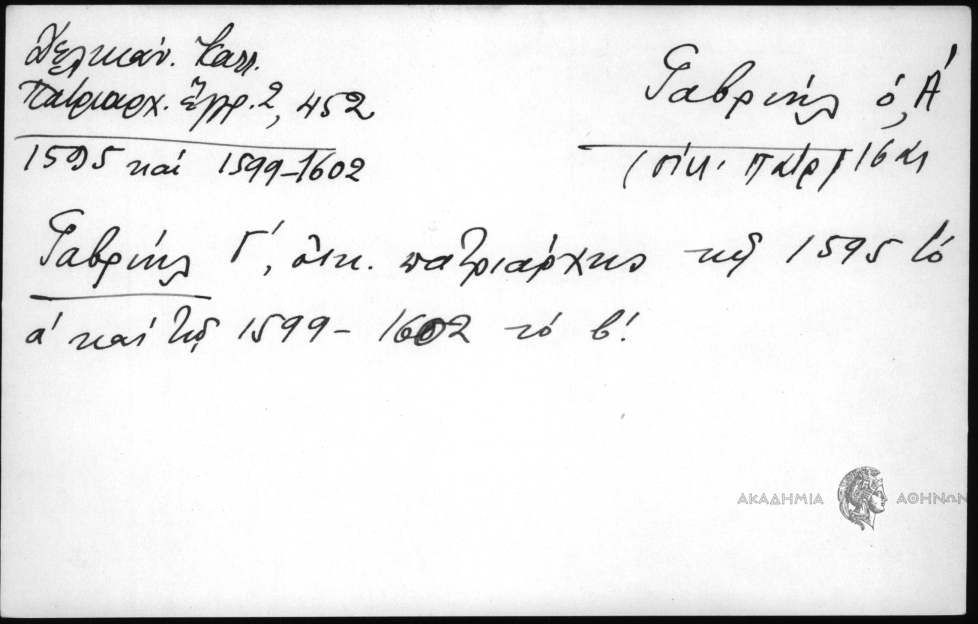 Δελικάν. Καλλ.
Πατριαρχ. Ἔγγρ. 2, 452
1595 καί 1599-1602
Γαβριήλ ὁ Α΄
(οἰκ. πατρ) 16 αι
Γαβριήλ Γ΄, οἰκ. πατριάρχης τῷ 1595 τό
α΄ καί τῷ 1599 - 1602 τό β΄.
ΑΚΑΔΗΜΙΑ ΑΘΗΝΩΝ